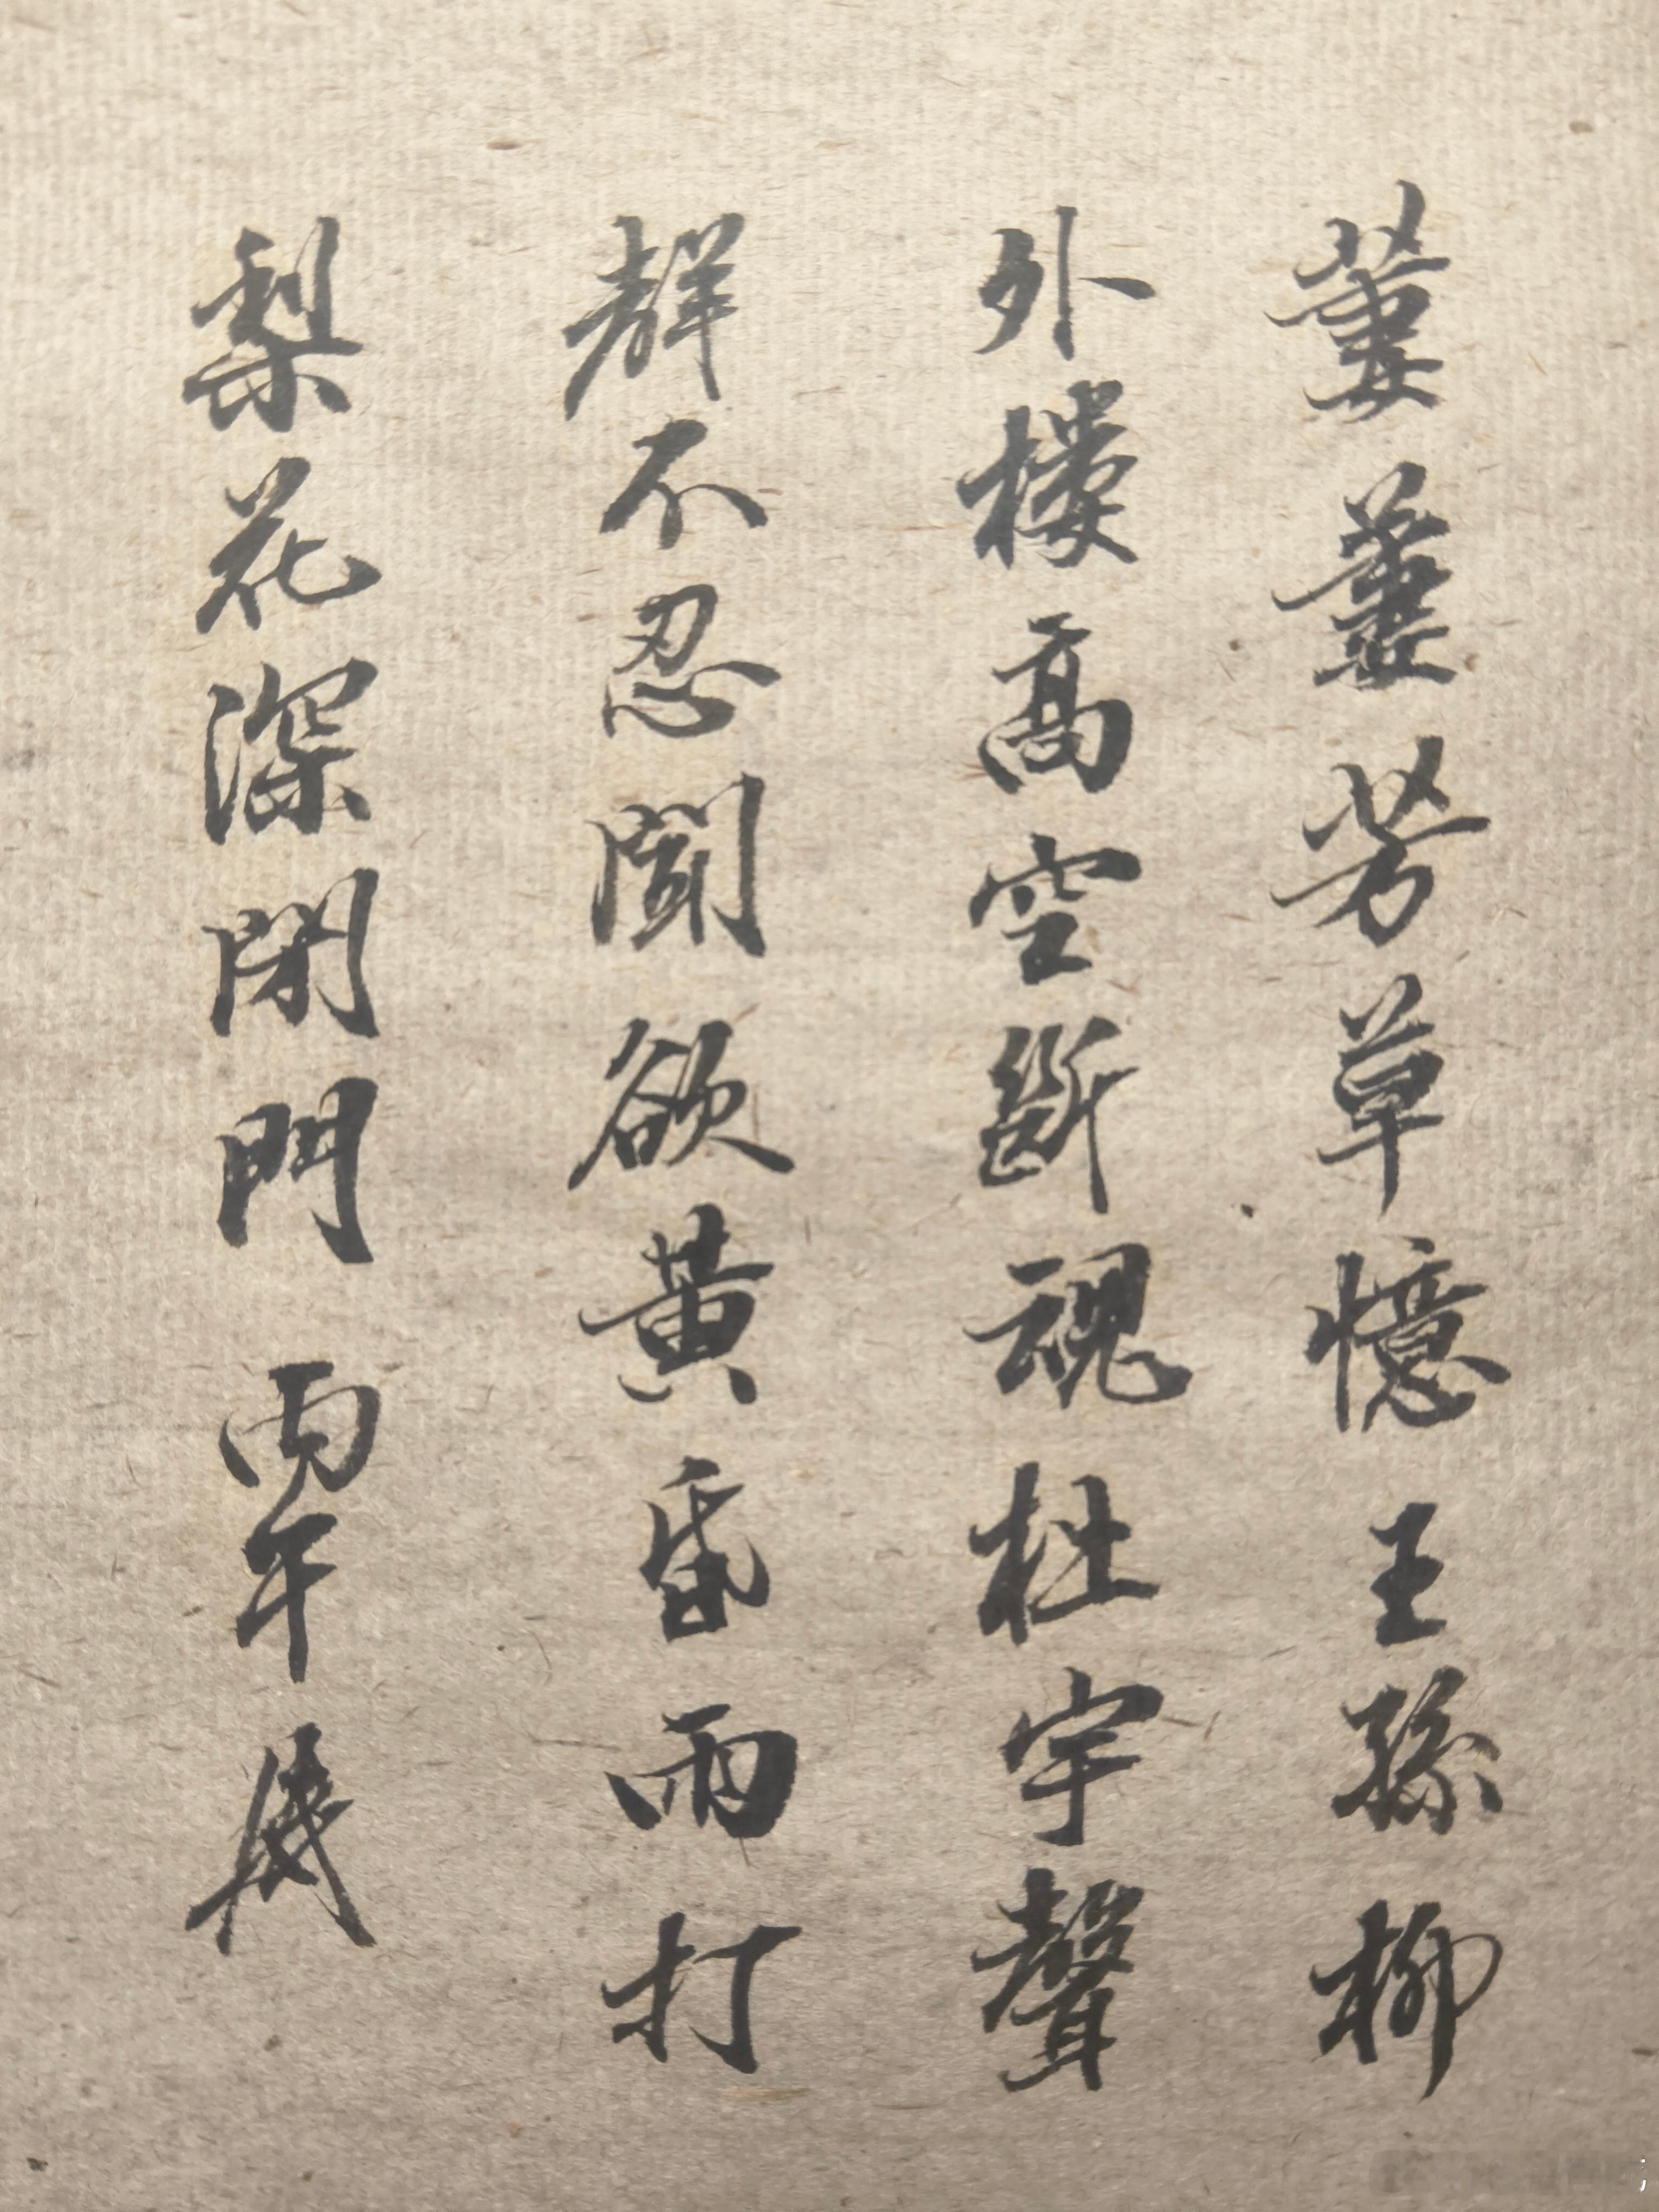 萋萋芳草憶王孫柳
外樓高空斷魂杜宇聲
聲不忍聞欲黃昏雨打
梨花深閉門 丙午